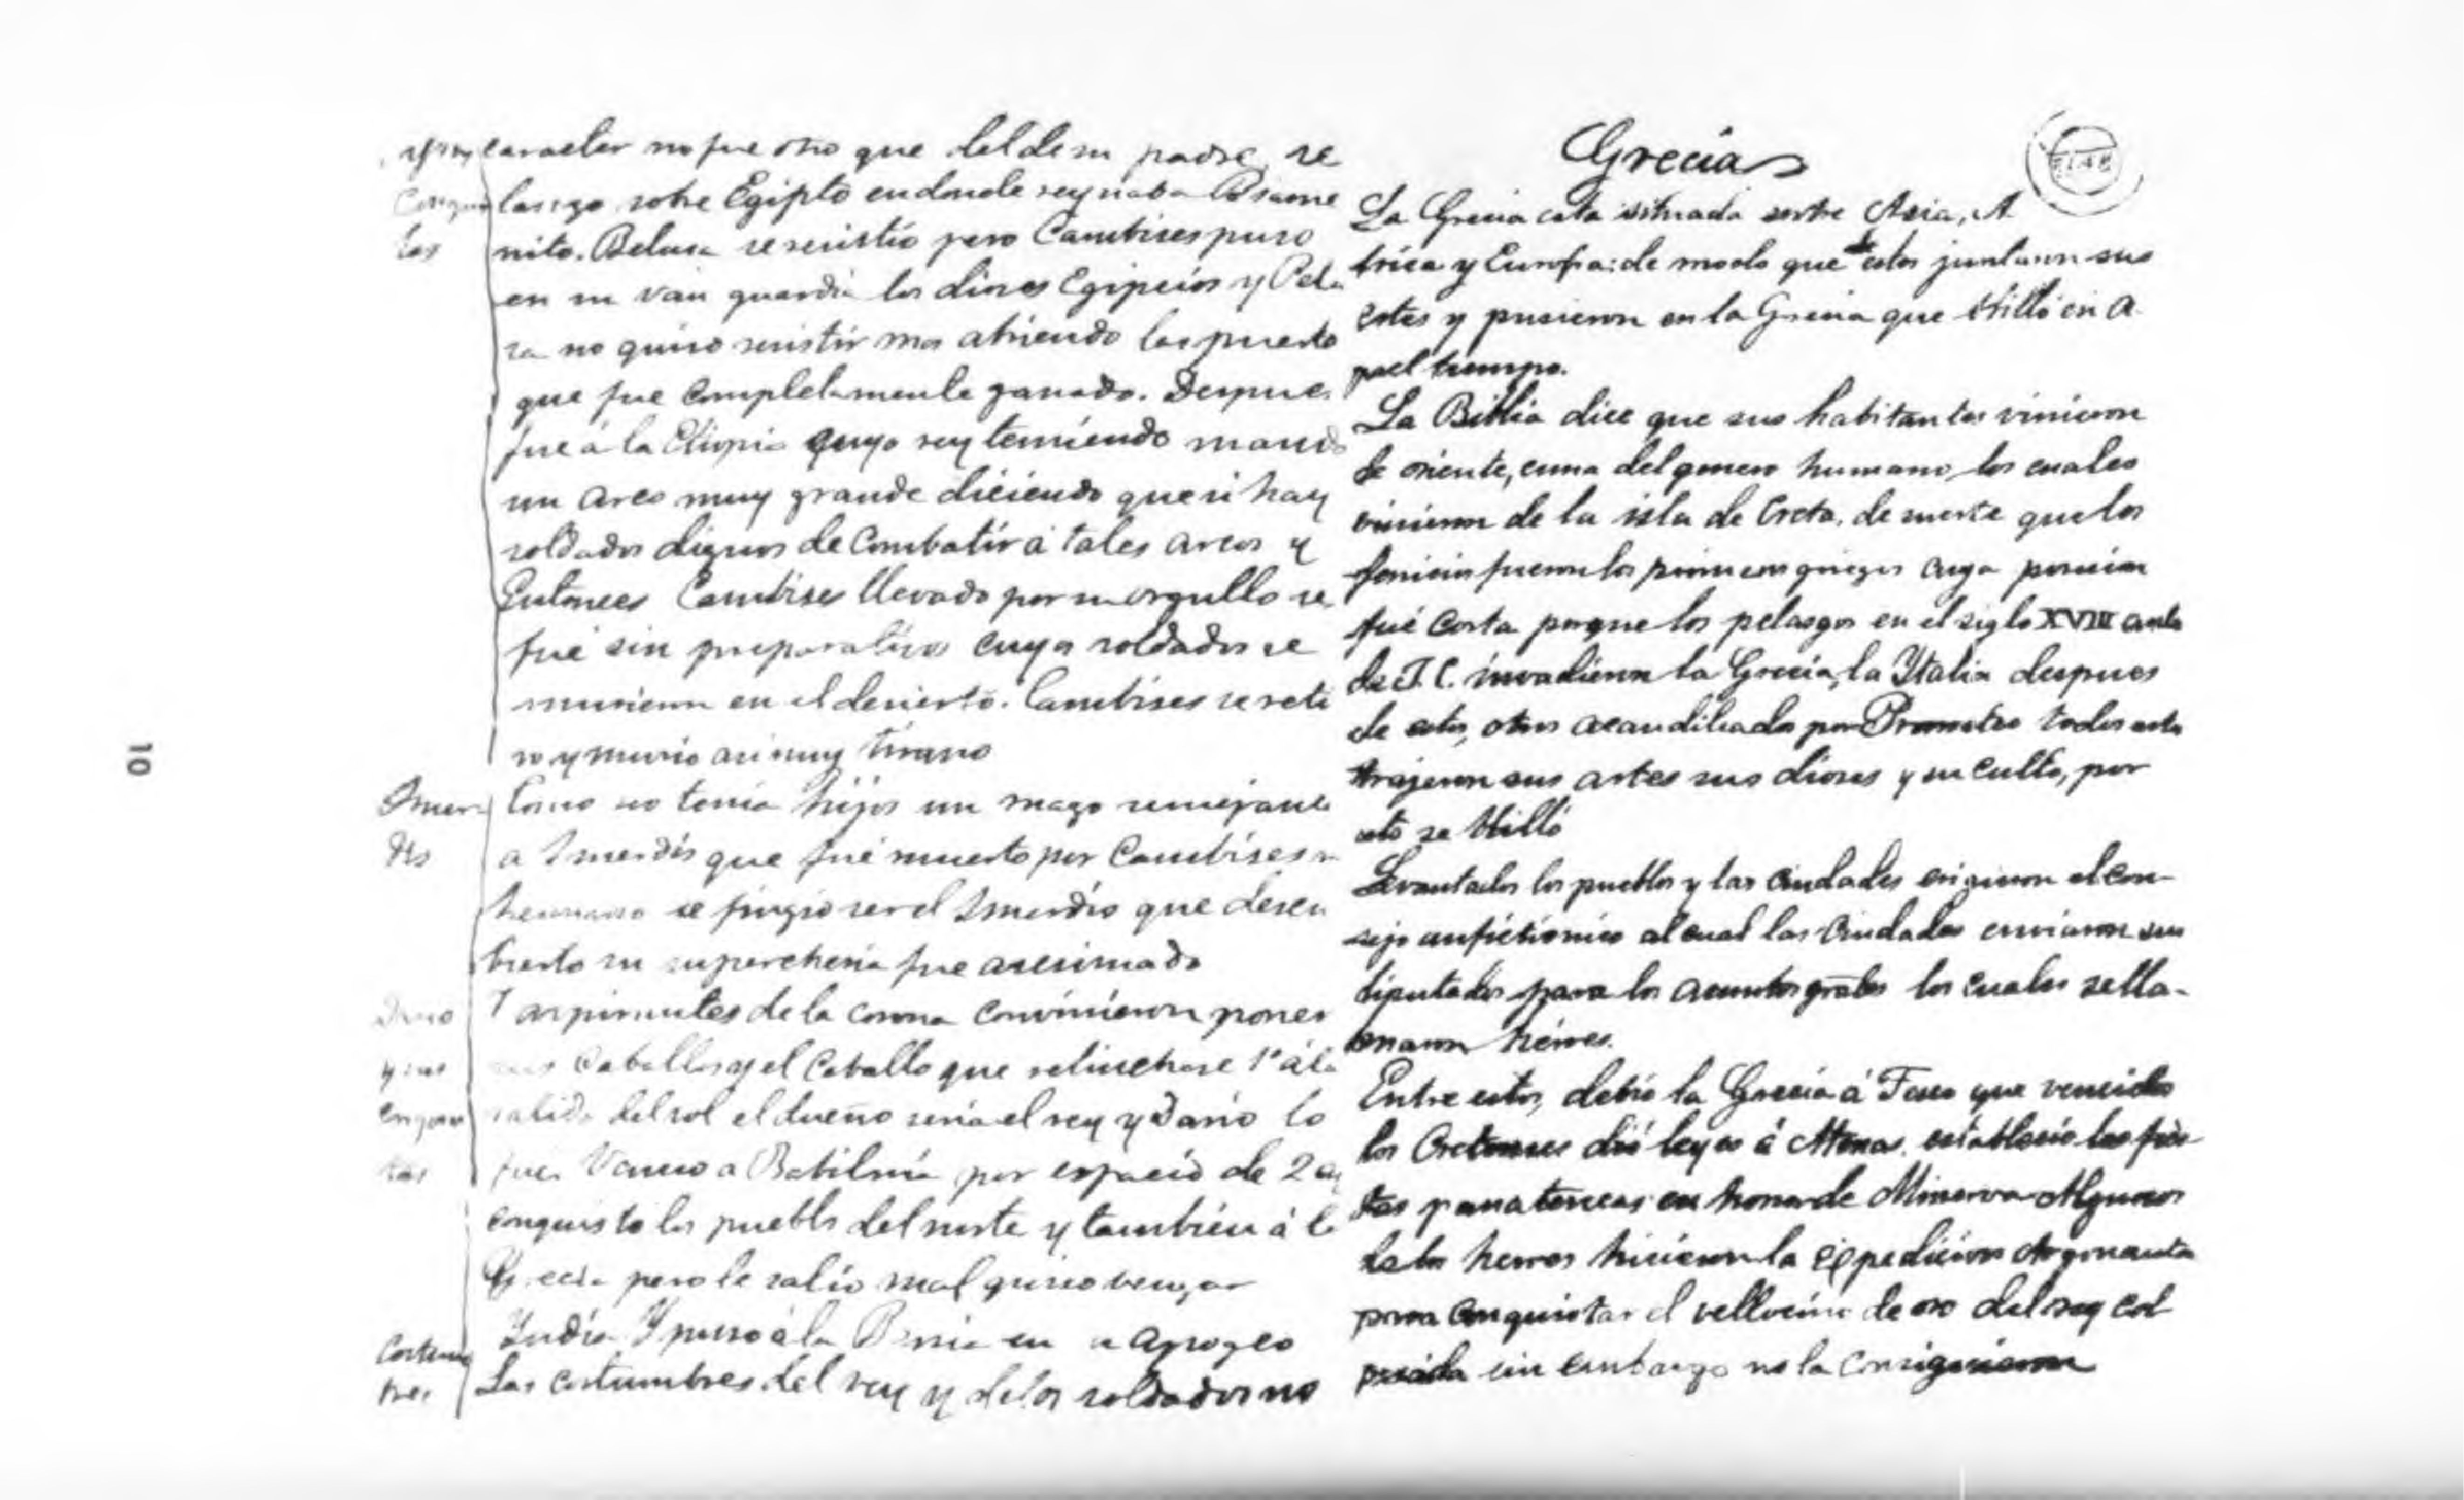 caracter no fue otro que del de su padre, se
lanzo sobre Egipto en donde reynaba Psame
nito. Pelusa se resistió pero Cambises puso
en su van guardia los dioses Egipcios y Pelu
sa no quiso resistir mas abriendo las puerta
que fue completamente ganado. Despues
fue á la Etiopia cuyo rey temiendo mando
un arco muy grande diciendo que si hay
soldados dignos de combatir á tales arcos y
Entonces Cambises llevado por su orgullo se
fué sin preparativo cuyos soldados se
murieron en el desierto. Cambises se reti
ro y murio asi muy tirano
Smer
dis
Como no tenia hijos un mago semejante
a Smerdis que fué muerto por Cambises
hermano se fingio ser el Smerdis que descu
bierto su supercheria fue asesinado
Dario
y sus
conquis
tas
7 aspirantes de la corona convinieron poner
sus caballos y el caballo que relinchase 1º á la
salida del sol el dueño seria el rey y Dario lo
fue. Vencio a Babilonia por espacio de 2
conquisto los pueblos del norte y también á la
Grecia pero le salio mal quiso vengar
India Y puso á la Persia en su apogeo
Costum
bres
Las costumbres del rey y de los soldados no
Grecia
La Grecia esta situada entre Asia, A
frica y Europa: de modo que estos juntaron sus
artes y pusieron en la Grecia que brilló en a
quel tiempo.
La Biblia dice que sus habitantes vinieron
de oriente, cuna del genero humano los cuales
vinieron de la isla de Creta, de suerte que los
fenicios fueron los primeros griegos cuya posesion
fué corta porque los pelasgos en el siglo XVIII antes
de J.C. invadieron la Grecia, la Ytalia despues
de estos, otros acaudillados por Prometeo todos estos
trajeron sus artes sus dioses y su culto, por
esto se brilló
Levantados los pueblos y las ciudades erigieron el con-
sejo anfictionico al cual las ciudades enviaron sus
diputados para los asuntos grales los cuales se lla-
maron héroes.
Entre estos, debio la Grecia á Teseo que vencidos
los Cretenses dió leyes á Atenas. establecio las fies-
tas panateneas en honor de Minerva Algunos
de los heroes hicieron la expedicion Argonauta
para conquistar el vellocino de oro del rey col
sin embargo no la consiguieron
10